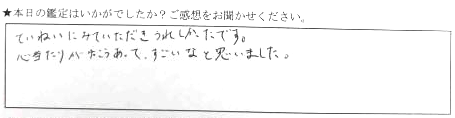 ★本日の鑑定はいかがでしたか？ご感想をお聞かせください。
ていねいにみていただきうれしかったです。
心当たりがたくさんあって、すごいなと思いました。